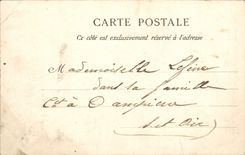 CARTE POSTALE
Ce côté est exclusivement réservé à l'adresse
Mademoiselle
dans sa famille
à Dampierre
S. et Oise